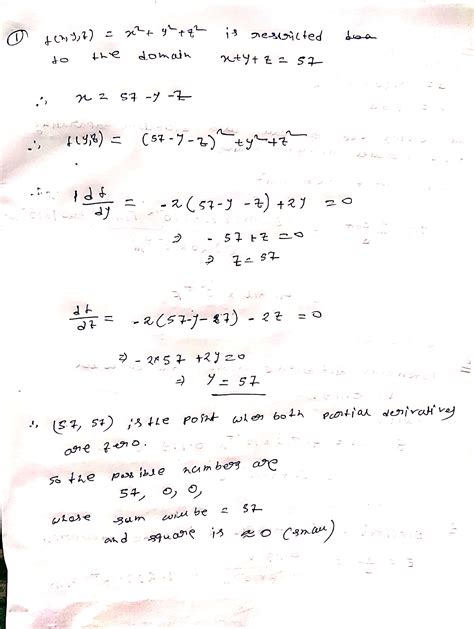 ① f(x,y,z) = x² + y² + z² is restricted
to the domain x+y+z = 57
∴ x = 57 - y - z
∴ f(y,z) = (57-y-z)² + y² + z²
df/dy = -2(57-y-z) + 2y = 0
⇒ -57 + z = 0
⇒ z = 57
df/dz = -2(57-y-z7) - 2z = 0
⇒ -2*57 + 2y = 0
⇒ y = 57
∴ (57, 57) is the point wher both partial derivatives
are zero.
so the possible numbers are
57, 0, 0,
whose sum will be = 57
and square is ≈ 0 (small)